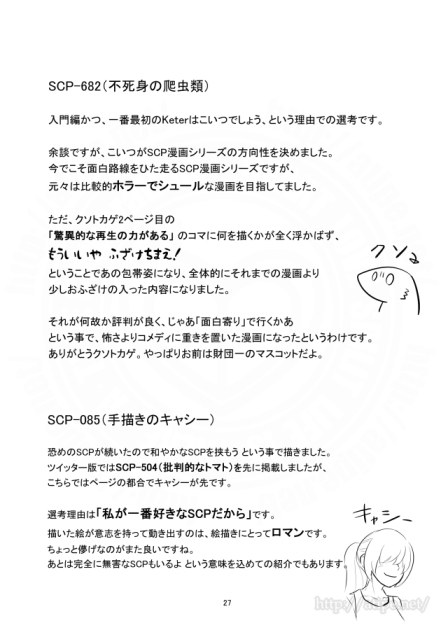 SCP-682（不死身の爬虫類）
入門編かつ、一番最初のKeterはこいつでしょう、という理由での選考です。
余談ですが、こいつがSCP漫画シリーズの方向性を決めました。
今でこそ面白路線をひた走るSCP漫画シリーズですが、
元々は比較的ホラーでシュールな漫画を目指してました。
ただ、クソトカゲ2ページ目の
「驚異的な再生の力がある」のコマに何を描くかが全く浮かばず、
もういいや ふざけちまえ！
ということであの包帯姿になり、全体的にそれまでの漫画より
少しおふざけの入った内容になりました。
クソ
それが何故か評判が良く、じゃあ「面白寄り」で行くかあ
という事で、怖さよりコメディに重きを置いた漫画になったというわけです。
ありがとうクソトカゲ。やっぱりお前は財団一のマスコットだよ。
SCP-085（手描きのキャシー）
恐めのSCPが続いたので和やかなSCPを挟もう という事で描きました。
ツイッター版ではSCP-504（批判的なトマト）を先に掲載しましたが、
こちらではページの都合でキャシーが先です。
選考理由は「私が一番好きなSCPだから」です。
描いた絵が意志を持って動き出すのは、絵描きにとってロマンです。
ちょっと儚げなのがまた良いですね。
あとは完全に無害なSCPもいるよ という意味を込めての紹介でもあります。
キャシー
27